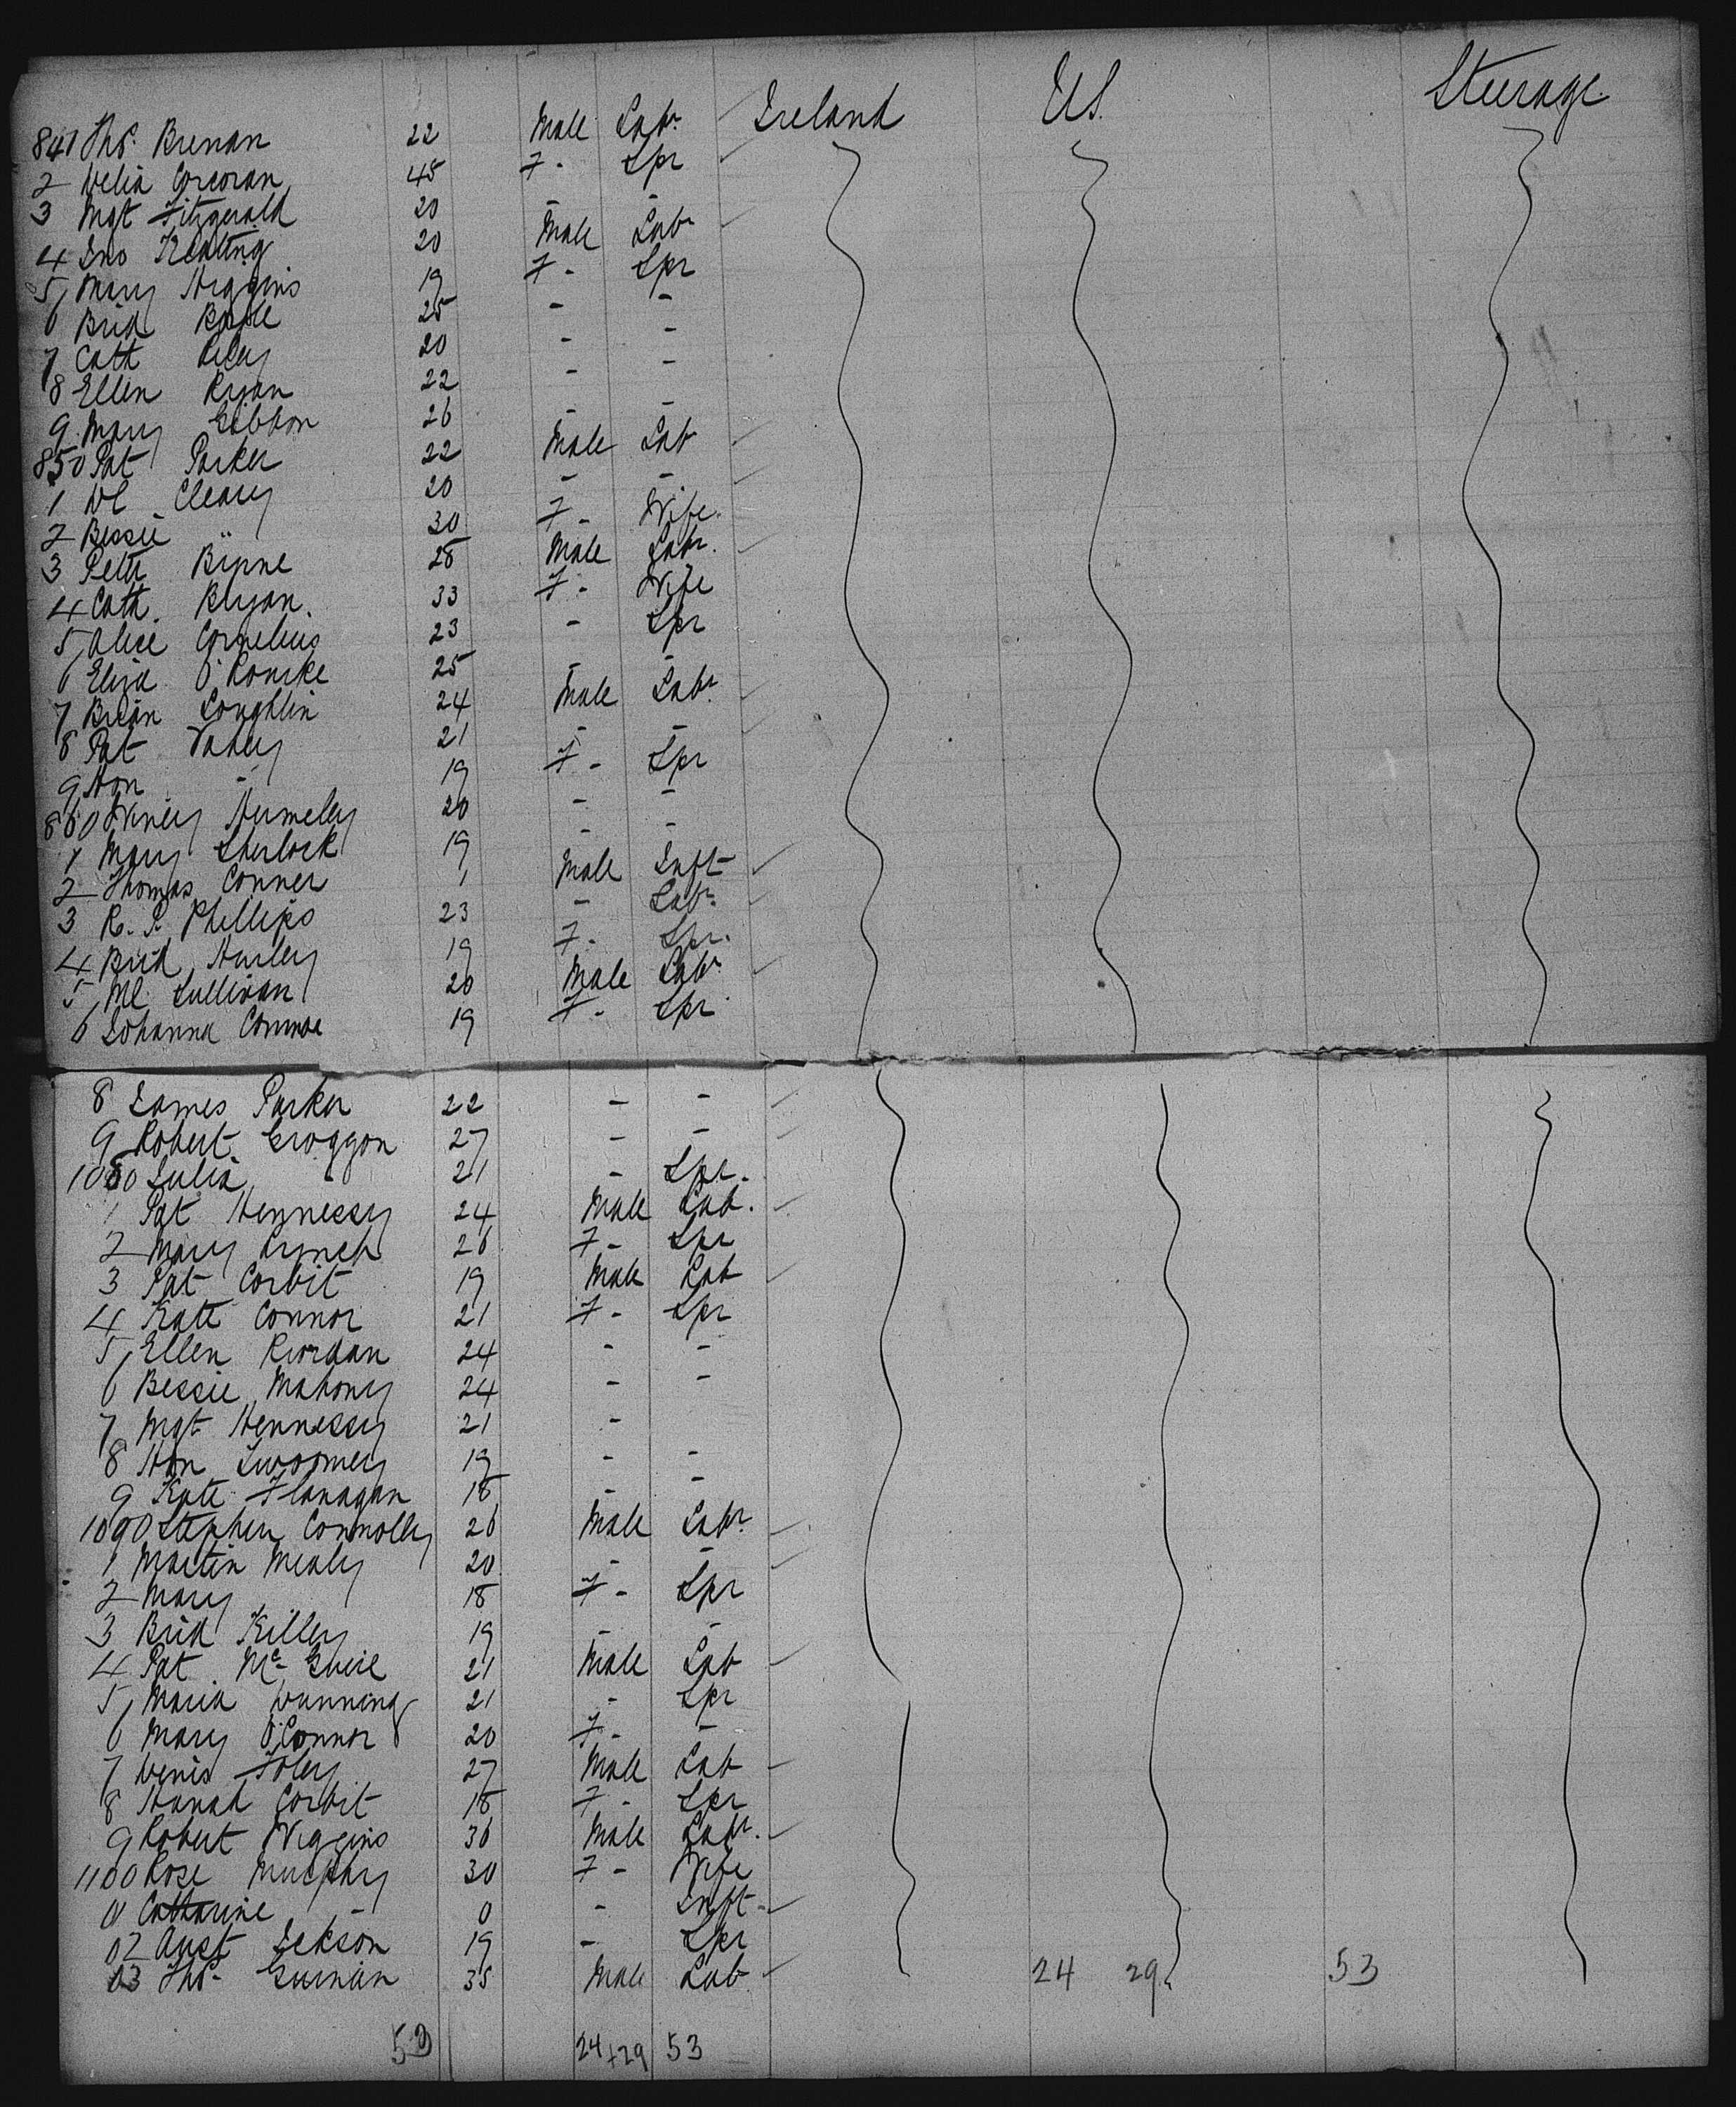 Ireland US. Steerage
841 Thos. Brenan 22 Male Labr.
2 Delia Corcoran 45 F - Spr
3 Mgt Fitzgerald 20 - -
4 Jno Keating 20 Male Labr
5 Mary Higgins 19 F - Spr
6 Brid 25 - -
7 Cath Riley 20 - -
8 Ellen Ryan 22 - -
9 Mary Gibbon 26 - -
850 Pat Parker 22 Male Lab
1 Cleary 20 - -
2 Bessie " 30 F - Wife.
3 Peter Birne 28 Male Labr.
4 Cath. 33 F - Wife
5 Alice Cornelius 23 - Spr
6 Eliza O'Rourke 25 - -
7 Brian Loughlin 24 Male Labr.
8 Pat Vahey 21 - -
9 Hon - 19 F - Spr
860 20 - -
1 Mary Sherlock 19 - -
2 Thomas Conner 1 Male Inft
3 R. P. Phillips 23 - Labr.
4 Brid Hurley 19 F - Spr.
5 Ml. Sullivan 20 Male Labr.
6 Johanna 19 F - Spr.
8 James Parker 22 - -
9 Robert Groggon 27 - -
1080 Julia 21 - Spr.
1 Pat Hennessy 24 Male Lab.
2 Mary Lynch 26 F - Spr
3 Pat Corbit 19 Male Lab
4 Kate Connor 21 F - Spr
5 Ellen Riordan 24 - -
6 Bessie Mahony 24 - -
7 Mgt Hennessy 21 -
8 Hon 19 - -
9 Kate Flanagan 18 - -
1090 Stephen Connolly 26 Male Labr.
1 Martin Mealy 20 - -
2 Mary 18 F - Spr
3 Brid Killey 19 - -
4 Pat Mc Guire 21 Male Lab
5 Maria Dunning 21 - Spr
6 Mary O'Connor 20 F - -
7 Denis Foley 27 Male Lab
8 Hanah Corbit 18 F - Spr
9 Robert Wiggins 36 Male Labr.
1100 Rose Murphy 30 F - Wife
01 Catharine - 0 - Inft.
02 Aust 19 - Spr
03 Thos. 35 Male Lab 24 29 53
53 24 + 29 53